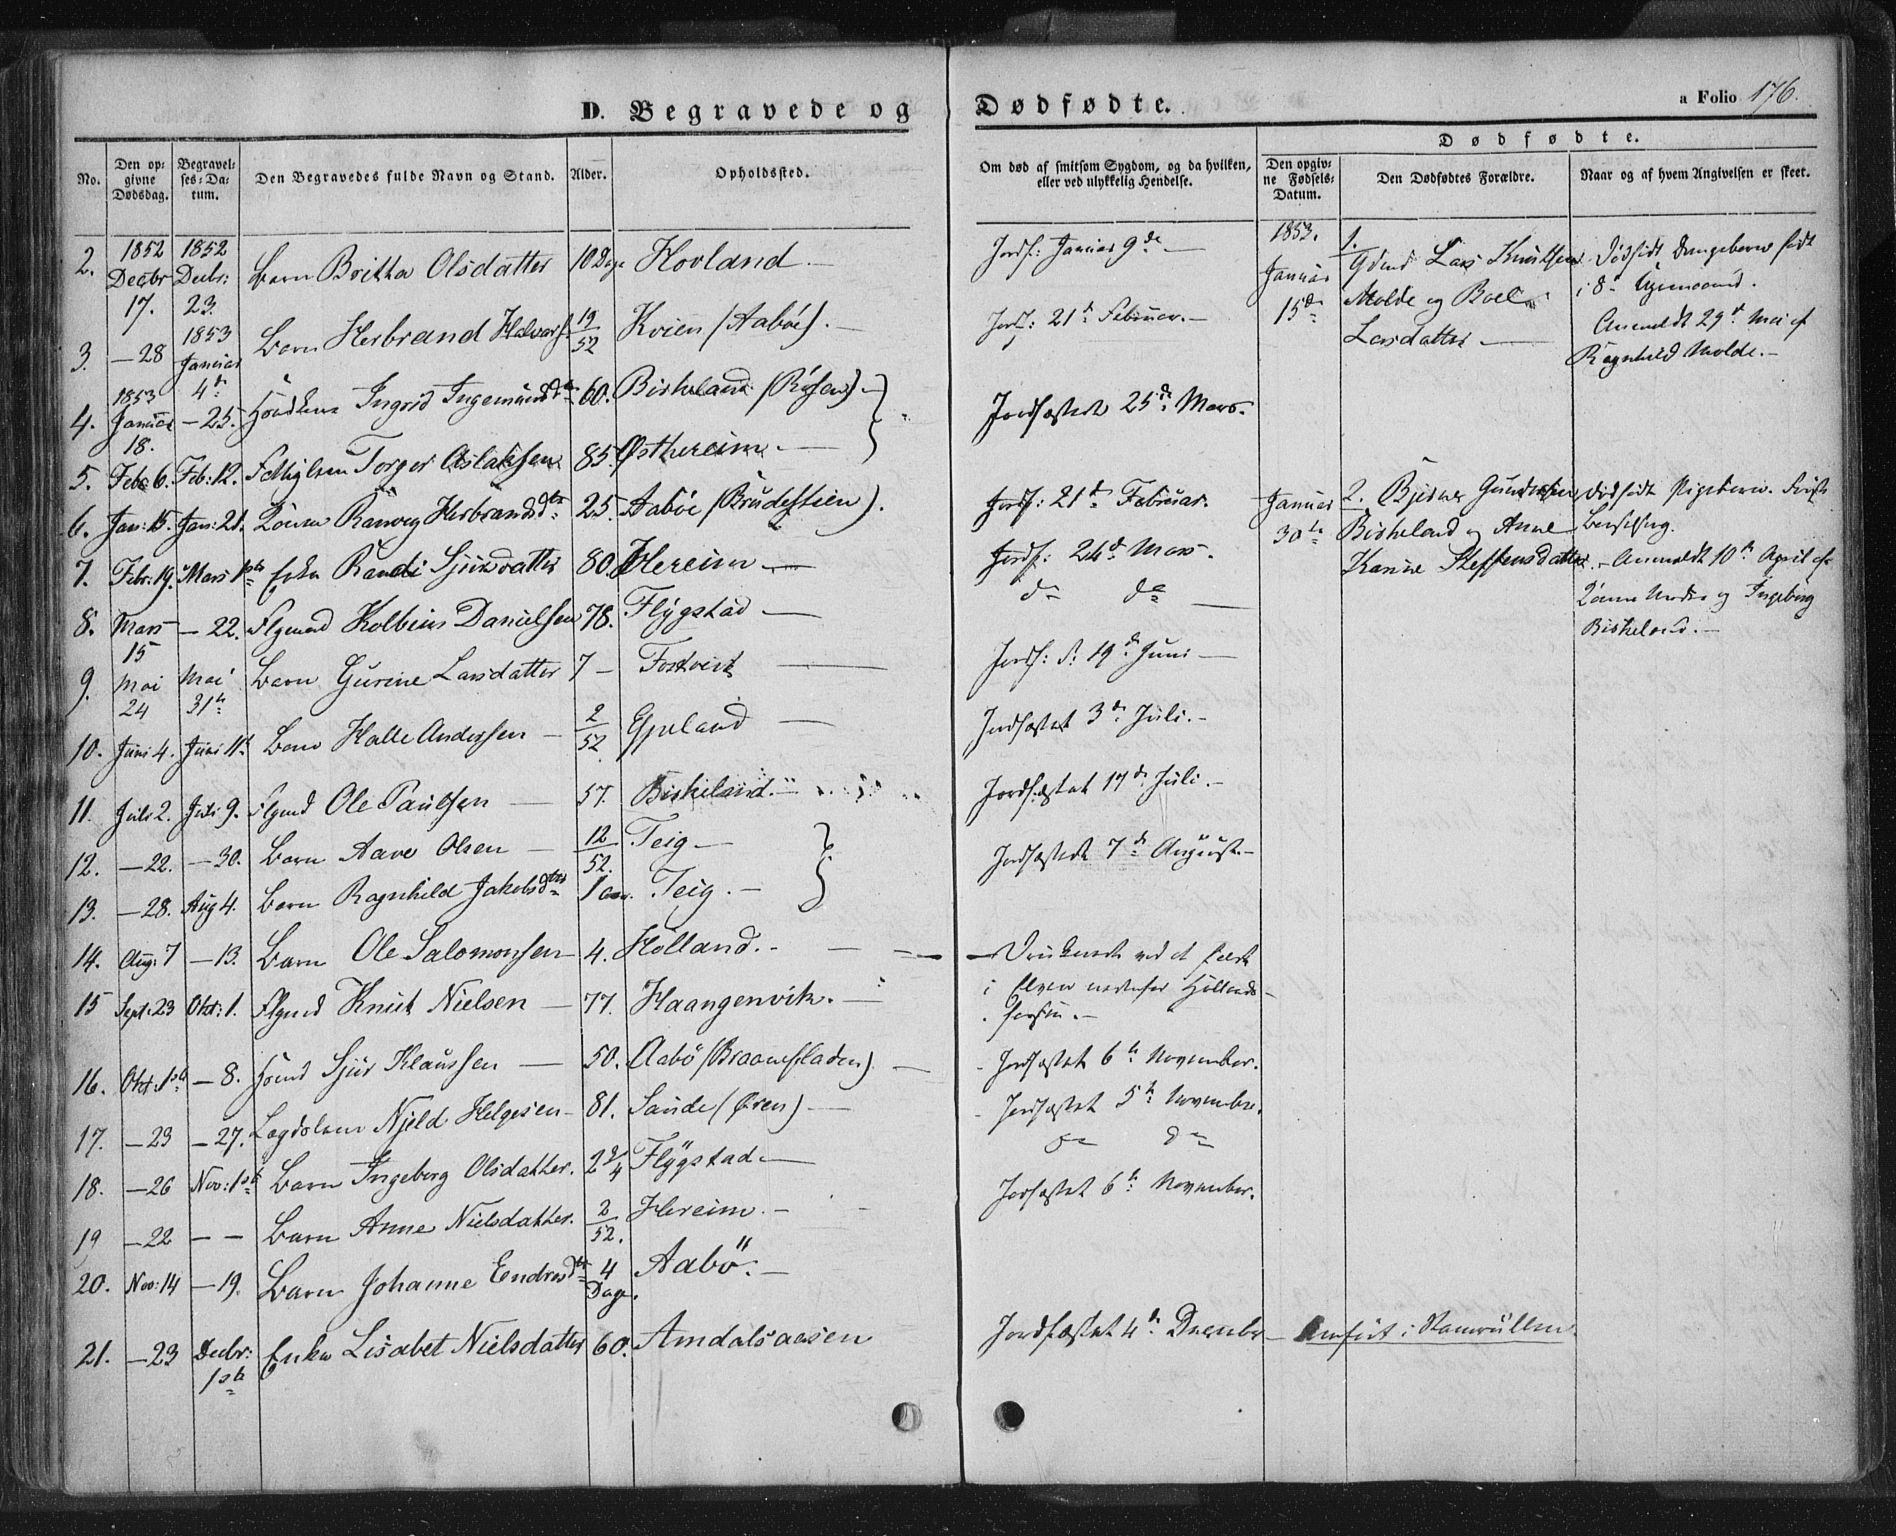 D. Begravede og Dødfødte.
a Folio 176.
No. Den opgivne Dødsdag. Begravelses-Datum. Den Begravedes fulde Navn og Stand. Alder. Opholdssted. Om død af smitsom Sygdom, og da hvilken, eller ved ulykkelig Hendelse.
Dødfødte.
Den opgivne Fødsels-Datum. Den Dødfødtes Forældre. Naar og af hvem Angivelsen er skeet.
2. 1852 Decbr 17. 1852 Decbr: 23. Barn Britta Olsdatter 10 Dage Hovland. — Jordf: Januar 9de —
3. — 28 1853 Januar 4de Barn Herbrand Halvorsf 19/52 Kvien (Aabøe). — Jordf: 21de Februar. —
4. 1853 Januar 18. — 25. Ingrid Ingemundsdtr 60. Birkeland (Røsen) — Jordfæstede 25de Mars.
5. Feb: 6. Feb: 12. Torger Aslaksen 85. Østhereim. —
6. Jan: 15. Jan: 21. Ranveg Herbrandsdtr 25. Aabøe (Brudestien). Jordf: 21de Februar.
7. Febr: 19. Mars 1ste Enke Randi Sjursdatter 80. Hereim — Jordf: 24de Mars.
8. Mars 15 — 22. Kolbein Danielsen 78. Flygstad — do do —
9. Mai 24 Mai 31te Barn Gurine Larsdatter 7 — Fosvedt — Jordf: d: 19de Juni —
10. Juni 4. Juni 11te Barn Halle Andersen — 2/52 Egeland — Jordfæstet 3de Juli. —
11. Juli 2. Juli 9. Ole Paulsen — 57. Birkeland. — Jordfæstet 17de Juli. —
12. — 22. — 30. Barn Aave Olsen — 12/52. Teig — Jordfæstede 7de August. —
13. — 28. Aug 4. Barn Ragnhild Jakobsdtr 1 Teig. —
14. Aug: 7 — 13. Barn Ole Salomonsen — 4. Hølland. — Druknede ved at falde i Elven nedenfor Høllands-forsen. —
15 Sept: 23 Okt: 1. Knut Nielsen — 77. Haangenvik. —
16. Okt: 1ste — 8. Sjur Klaussen — 50. Aabø (Braanefladen) — Jordfæstet 6te November.
17. — 23 — 27. Njeld Helgesen — 81. Sande (Øren) — Jordfæstet 5te November.
18. — 26 Nov: 1ste Barn Ingeborg Olsdatter. 2 2/4 Flygstad — do do
19 — 22 — — Barn Anne Nielsdatter. 2/52. Hereim. — Jordfæstet 6te November.
20. Nov: 14 — 19. Barn Johanne Endresdtr 4 Dage. Aabø. —
21. — 23 Decbr: 1ste Enke Lisabet Nielsdatter 60. Amdalsaasen Jordfæstet 4de December —
1853. Januar 15de
1. Gdmd Lars Knutsen Molde og Boel Larsdatter —
Dødfødt Drengebarn født i 8de Anmeldt 29de Mai af Ragnhild Molde. —
Januar 30te
2. Birkeland og Anne Karine Steffensdatter.
Dødfødt Pigebarn. — Anmeldt 10de April af og Ingeborg Birkeland. —